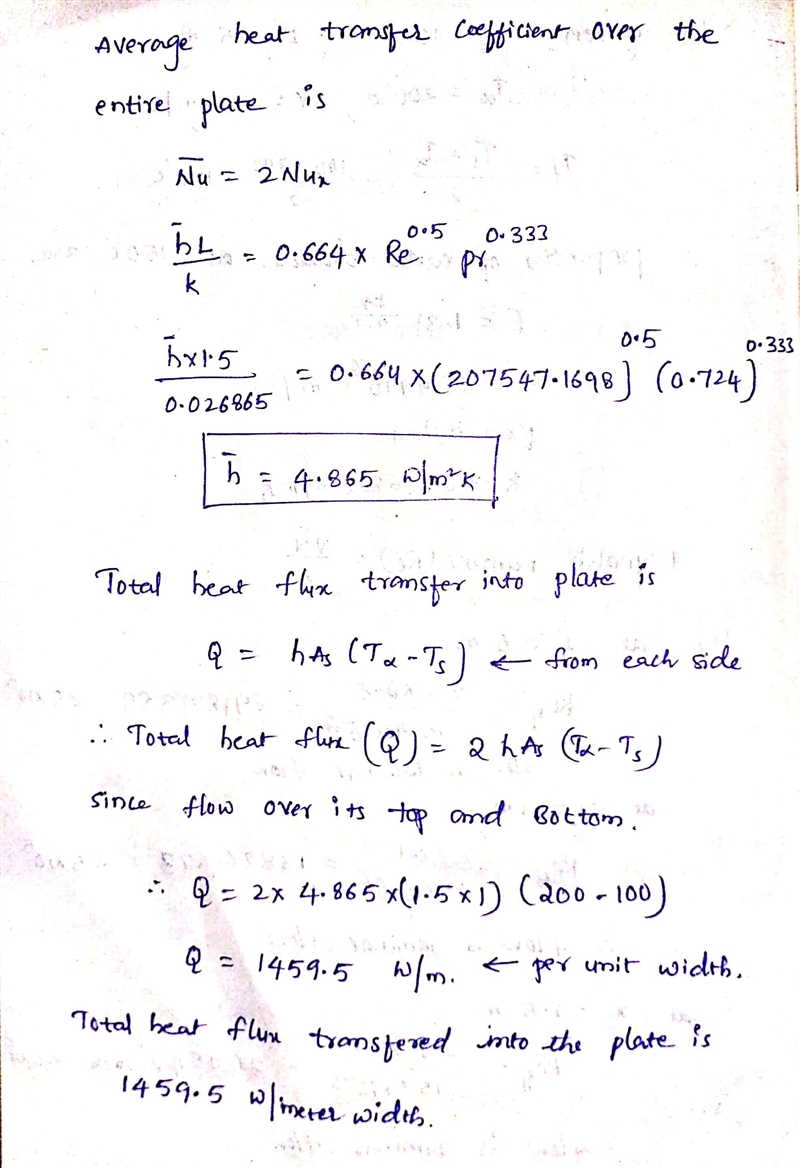 Average heat transfer Coefficient over the
entire plate is
N̄u = 2 Nux
h̄L/k = 0.664 x Re^0.5 pr^0.333
h̄x1.5/0.026865 = 0.664 x (207547.1698)^0.5 (0.724)^0.333
h̄ = 4.865 W/m²K
Total heat flux transfer into plate is
Q = hAs (Tα - Ts) ← from each side
∴ Total heat flux (Q) = 2 hAs (Tα - Ts)
since flow over its top and Bottom.
∴ Q = 2x 4.865 x(1.5 x 1) (200 - 100)
Q = 1459.5 W/m. ← per unit width.
Total heat flux transfered into the plate is
1459.5 W/meter width.